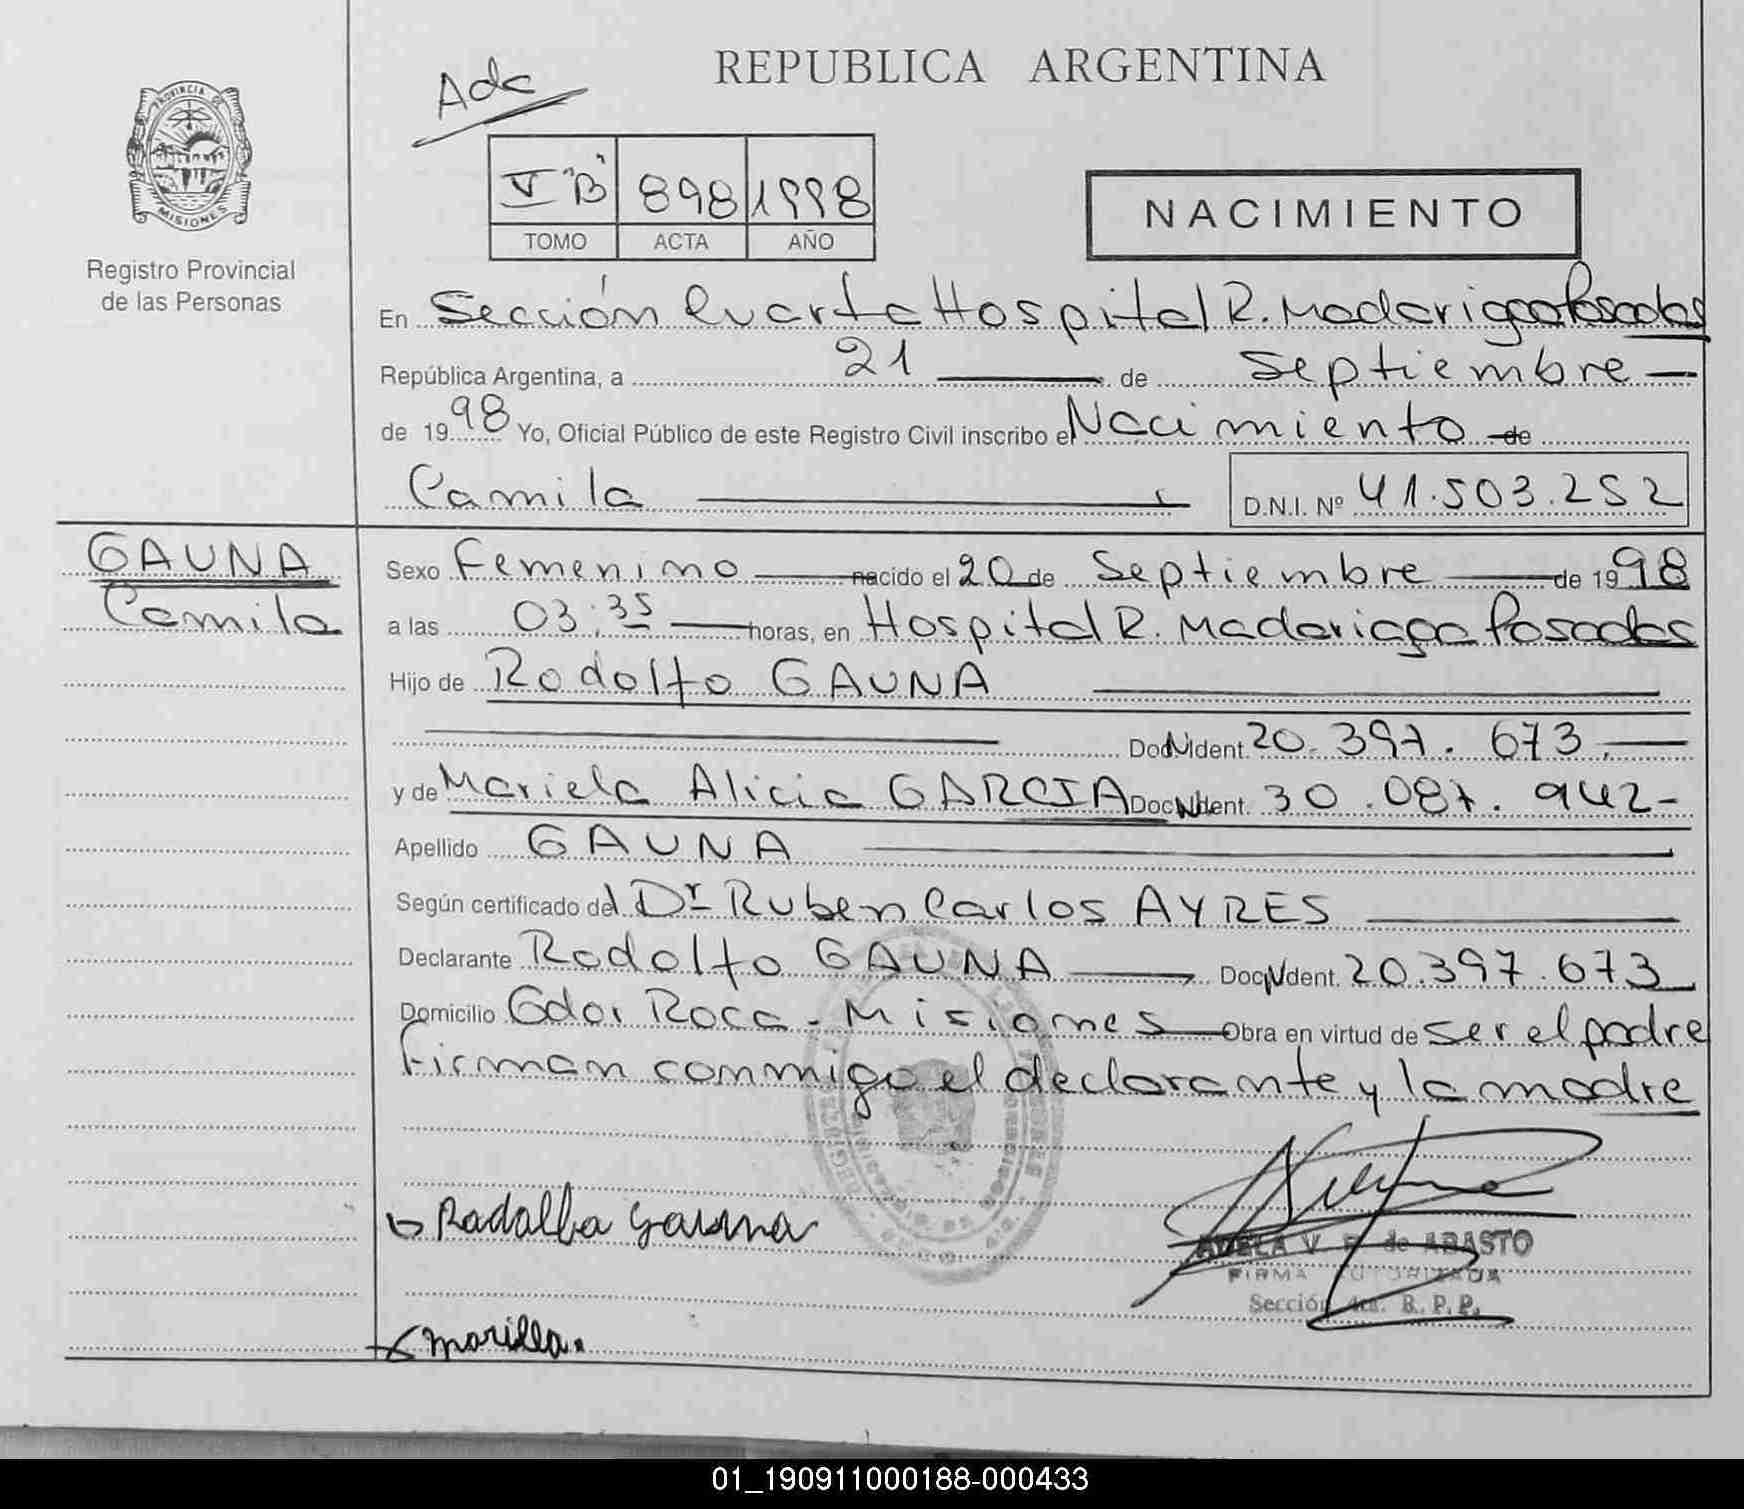 REPUBLICA ARGENTINA
Adc
PROVINCIA DE
MISIONES
Registro Provincial
de las Personas
V "B" 898 1998
TOMO ACTA AÑO
NACIMIENTO
En Sección Cuarta Hospital R. Madariaga Posadas
República Argentina, a 21 de Septiembre
de 1998 Yo, Oficial Público de este Registro Civil inscribo el Nacimiento de
Camila D.N.I. Nº 41.503.252
GAUNA
Camila
Sexo Femenino nacido el 20 de Septiembre de 1998
a las 03:35 horas, en Hospital R. Madariaga Posadas
Hijo de Rodolfo GAUNA
Doc. Ident. 20.397.673.
y de Mariela Alicia GARCIA Doc. Ident. 30.087.942-
Apellido GAUNA
Según certificado del Dr Ruben Carlos AYRES
Declarante Rodolfo GAUNA Doc. Ident. 20.397.673
Domicilio Gdor Roca - Misiones Obra en virtud de ser el padre
Firman conmigo el declarante y la madre
Radalfa Gauna
ADELA V. de ABASTO
FIRMA AUTORIZADA
Sección 4ta. R. P. P.
01_190911000188-000433